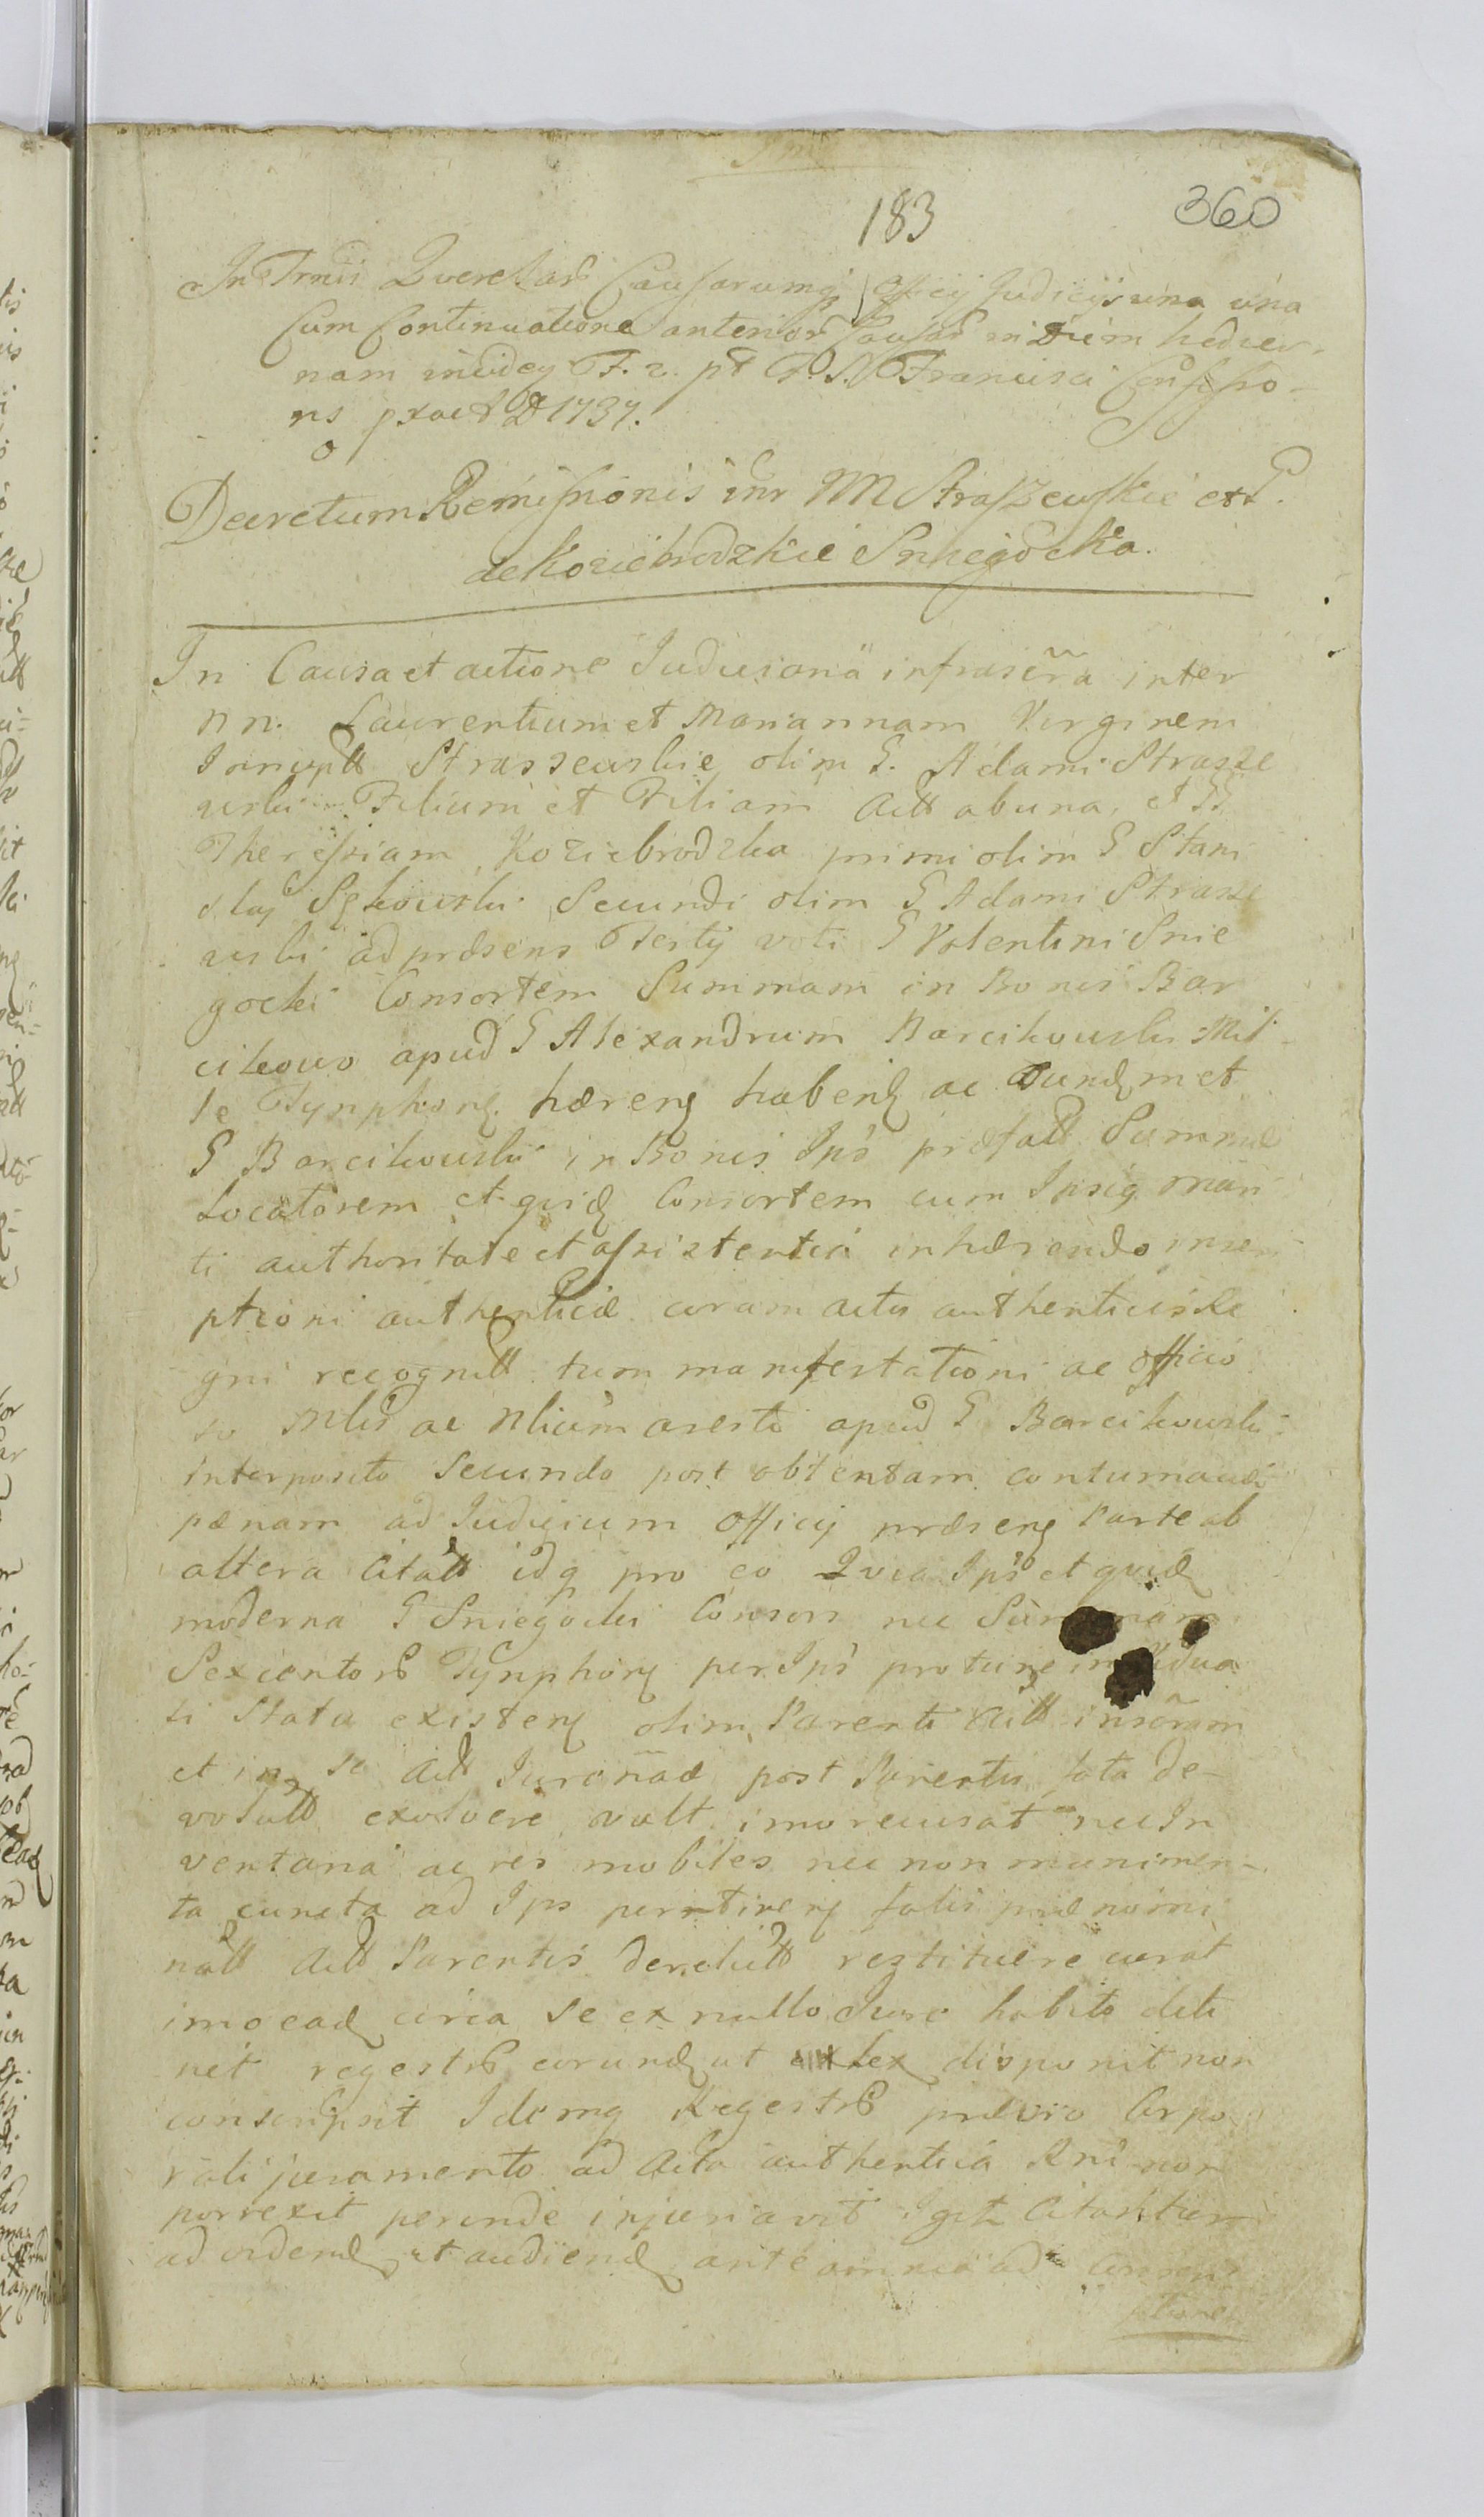 183 360
In Trmis Querelar Causarumq Officij Judicijs una una
Cum Continuatione anterior Causar in Diem hodier-
nam incideñ F. 2. pt F. S. Francisci Confesso-
ris pxact D 1737.
Decretum Remissionis inr M M Straszewskie et G.
de Koziebrodzkie Sniegocka.
In Causa et actione Judiciaria infrascra inter
nn. Laurentium et Mariannam Virginem
Innuptt Strasseuskie olim G. Adami Strasze
uski Filium et Filiam Actt ab una, et G
Theressiam Koziebrodzka primi olim G Stani
slaj Sękowski Secundi olim G Adami Strasze
uski ad præsens Tertij voti G Valentini Snie
gocki Consortem Summam in Bonis Bar
cikowo apud G Alexandrum Barcikouski Mil-
le Tynphonę hærenę habenę ac eundmet
G Barcikouski in Bonis Ips præfatt Summæ
Locatorem et quidę Consortem cum Ipsiq mari
ti authoritate et assistentia inhærendo inscri
ptioni authenticæ coram actis authenticis Re
gni recognitt tum manifestationi ac officio
so Mlis ac Nlium aresto apud G Barcikouski
interposito Secundo post obtentam contumaciæ
pænam ad Judicium Officij præsenę Parte ab
altera Citatt idq pro eo Quia Ips et quidę
moderna G Sniegocki Consors nec Summam
Sexcentorῷ Tynphonę per Ips protunc in Vidua
li Statu existenę olim Parenti Actt inscram
et in se Actt Jure nae post Parentis fata de-
volutt exolvere vult imo recusat nec In
ventaria ac res mobiles nec non munimen-
ta cuncta ad Ips pertinenę fatis prænomi
natt Actt Parentis derelictt restituere curat
imo eadę circa se ex nullo Jure habito deti
net regestrῷ eorundę ut lex disponit non
conscripsit Idemq Regestrῷ prævio Corpo
rali juramento ad Acta authentica Rni non
porrexit perinde injuriavit. Igtr Citantur
ad videndę et audiendę ante omnia ad Conscri
pturę